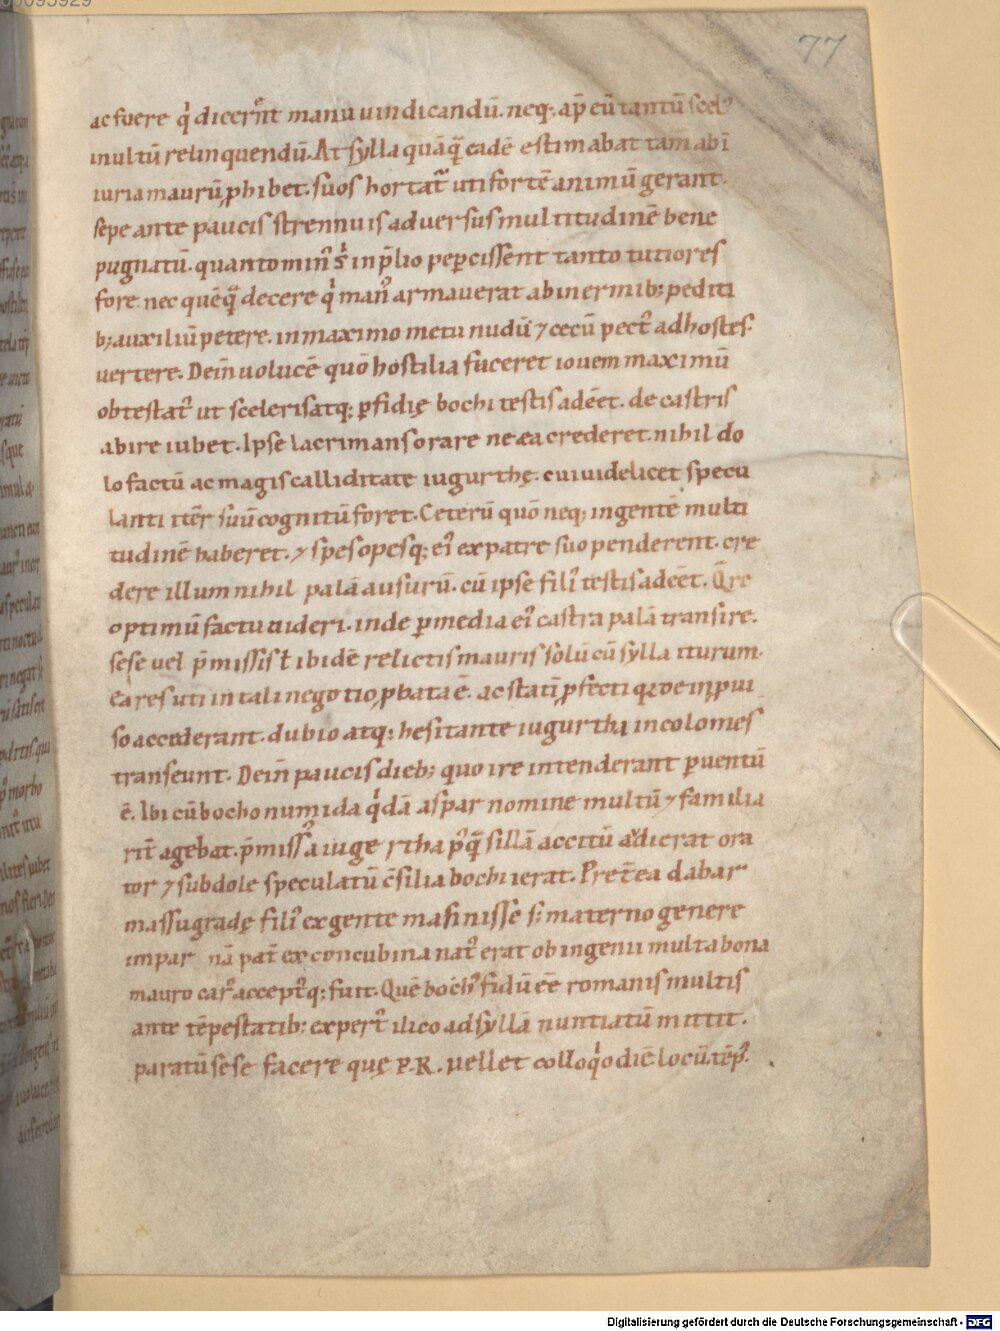 00095929
77
ac fuere q̍ dicer̃nt manu uindicandū. neq; ap̄ eū tantū scel᷒
inultū relinquendū. At sylla quāq̄ eadē estimabat tam̄ abī
iuria maurū ꝓhibet. suos hortat᷒ uti fortē animū gerant.
sępe ante paucis strennuis aduersus multitudinē bene
pugnatū. quanto min᷒ s̍ in p̄lio pepcissent tanto tutiores
fore. nec quēq̄ decere q̍ man᷒ armauerat ab inermib; pediti
b; auxiliū petere. in maximo metu nudū ⁊ cecū pect᷒ ad hostes
uertere. Dein̄ uolucē quō hostilia faceret iouem maximū
obtestat᷒ ut sceleris atq; ꝑfidię bochi testis adēet. de castris
abire iubet. Ipse lacrimans orare ne ea crederet. nihil do
lo factū ac magis calliditate iugurthę. cui uidelicet specu
lanti iter̄ suū cognitū foret. Ceterū quō neq; ingentē multi
tudinē haberet. ⁊ spes opesq; ei᷒ ex patre suo penderent. cre
dere illum nihil palā ausurū. cū ipse fili᷒ testis adēet. Q̄re
optimū factu uideri. inde ꝑ media ei᷒ castra palā transire.
sese uel p̄missis ł ibidē relictis mauris solū cū sylla iturum.
Ea res uti in tali negotio ꝓbata ē. ac statī ꝓfecti
so accederant. dubio atq; hesitante iugurtha incolomes
transeunt. Dein̄ paucis dieb; quo ire intenderant ꝑuentū
ē. Ibi cū bocho numida q̍dā aspar nomine multū ⁊ familia
rit̄ agebat. p̄miss᷒ a iugurtha p᷒q̄ sillā accitū audierat ora
tor ⁊ subdole speculatū c̄silia bochi ierat. Pret̄ea dabar
massugradę fili᷒ ex gente masinissę s; materno genere
impar nā pat̄ ex concubina nat᷒ erat ob ingenii multa bona
mauro car᷒ accept᷒q; fuit. Quē boch᷒ fidū ēē romanis multis
ante tēpestatib; expert᷒ ilico ad syllā nuntiatū mittit.
paratū sese facere quę P.R. uellet colloq̍o diē locū. tēp᷒.
Digitalisierung gefördert durch die Deutsche Forschungsgemeinschaft - DFG